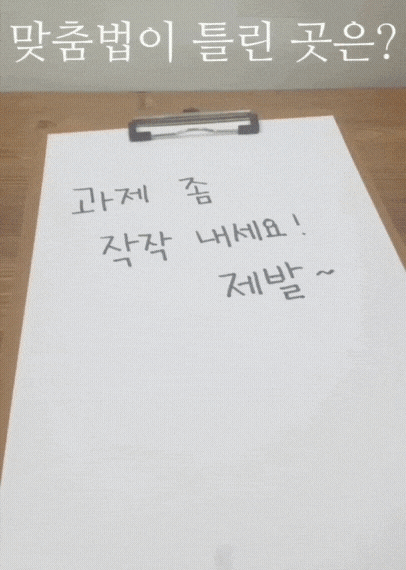 맞춤법이 틀린 곳은?
과제 좀
작작 내세요!
제발~